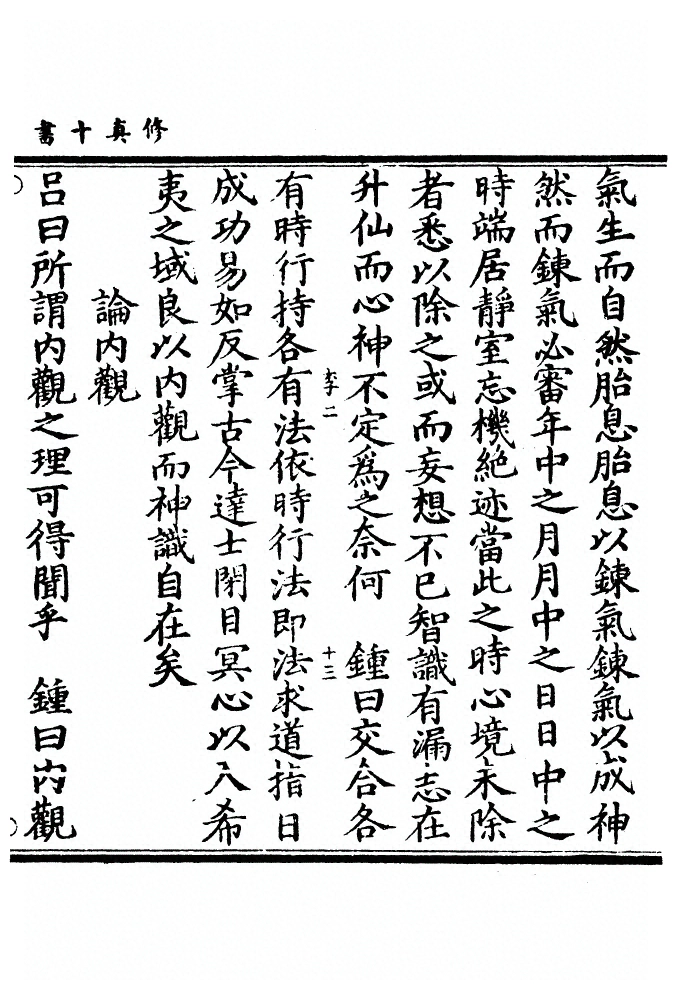 修真十書
氣生而自然胎息胎息以鍊氣鍊氣以成神
然而鍊氣必審年中之月月中之日日中之
時端居靜室忘機絕迹當此之時心境未除
者悉以除之或而妄想不已智識有漏志在
升仙而心神不定爲之奈何　鍾曰交合各
李二　十三
有時行持各有法依時行法即法求道指日
成功易如反掌古今達士閉目冥心以入希
夷之域良以内觀而神識自在矣
論内觀
吕曰所謂内觀之理可得聞乎　鍾曰内觀